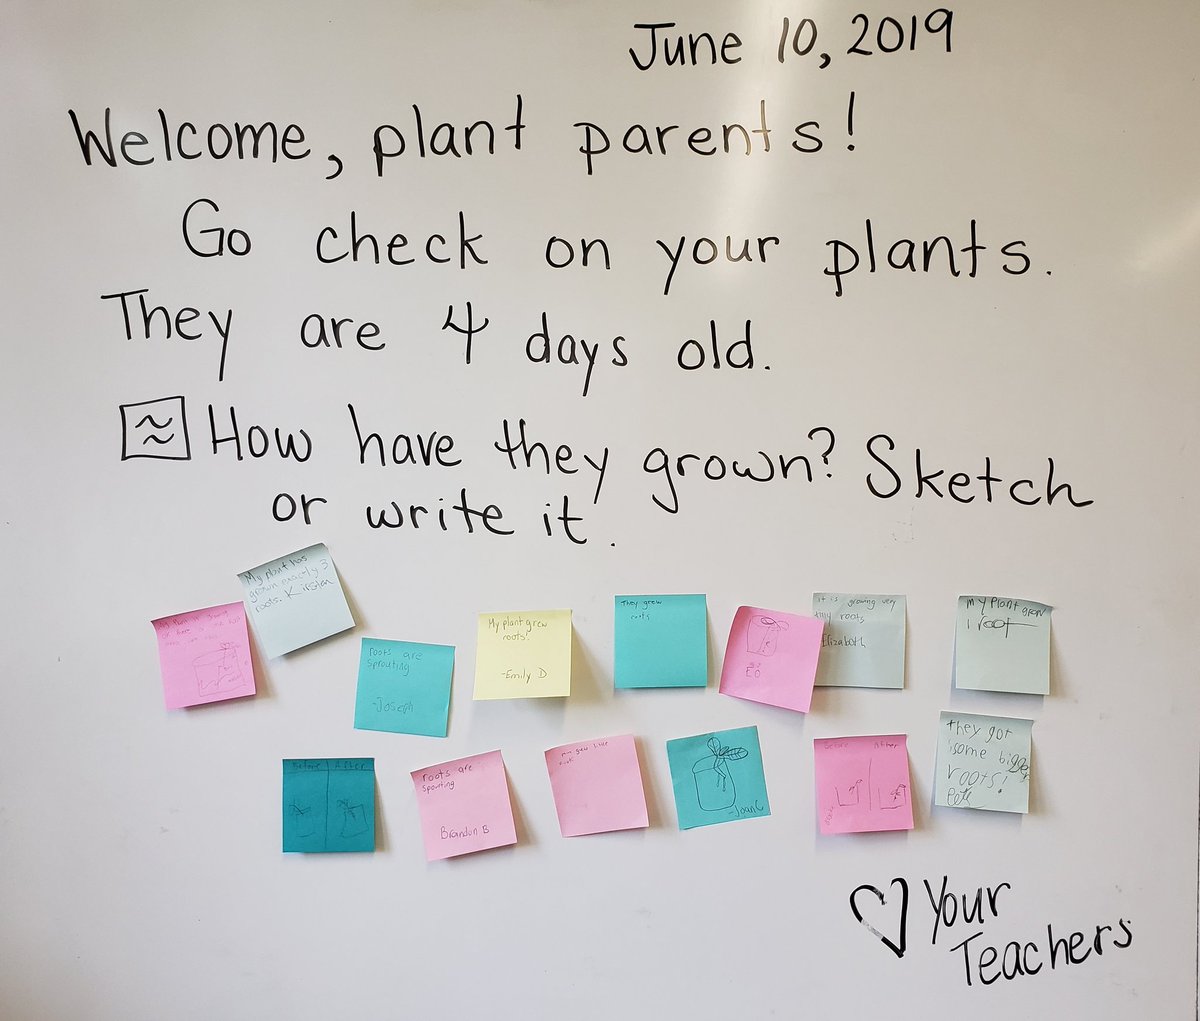 June 10, 2019
Welcome, plant parents!
Go check on your plants.
They are 4 days old.
How have they grown? Sketch
or write it.
My plant has
grown exactly 3
roots. Kirstan
roots are
Sprouting
-Joseph
My plant grew
roots!
-Emily D
They grew
roots
It is growing very
tiny roots
Elizabeth
My Plant grew
1 root
Before After
roots are
Sprouting
Brandon B
grew little
-Joan C
Before After
they got
some bigger
roots!
Your
Teachers